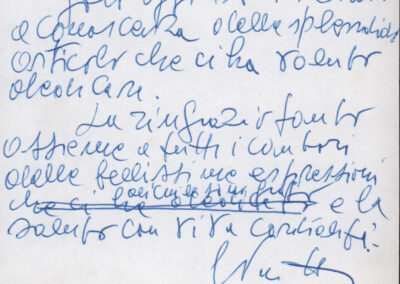 a conoscenza dello splendido
articolo che ci ha voluto
dedicare.
La ringrazio tanto
assieme a tutti i
delle bellissime espressioni
che ci ha dedicato e la
saluto con viva cordialità.